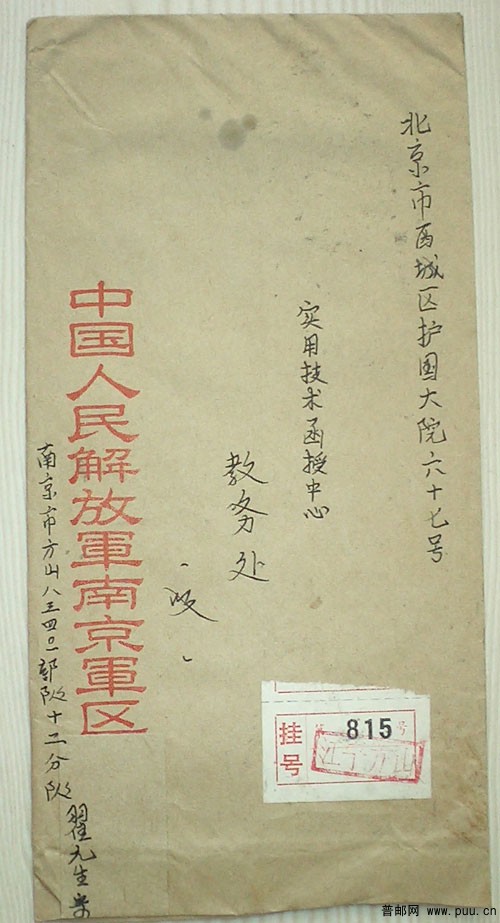 北京市西城区护国大院六十七号
实用技术函授中心
教务处
收
中国人民解放軍南京軍区
南京市方山八三四〇一部队十二分队
挂号
第 815 号
江宁方山
普邮网 www.puu.cn